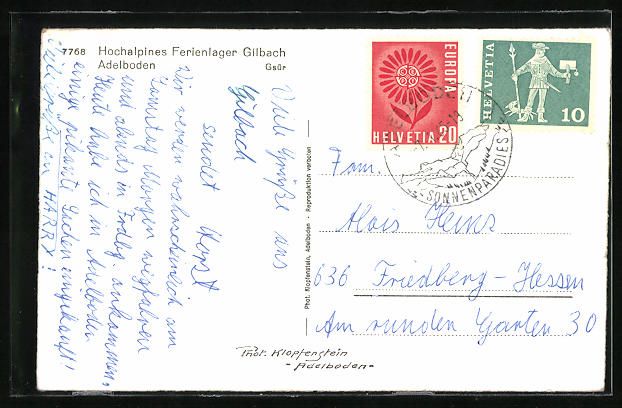 7768 Hochalpines Ferienlager Gilbach
Adelboden Gsür
Viele Grüße aus
Gilbach
sendet Horst
Wir werden wahrscheinlich am
Samstag Morgen wegfahren
und abends in Frdbg. ankommen.
Heute habe ich in Adelboden
einige pikante Sachen eingekauft!
Viele Grüße an HARRY!
Phot. Klopfenstein, Adelboden - Reproduktion verboten
Phot. Klopfenstein
- Adelboden -
EUROPA
HELVETIA 20
HELVETIA
10
SONNENPARADIES
Fam.
Alois Heinz
636 Friedberg-Hessen
Am runden Garten 30